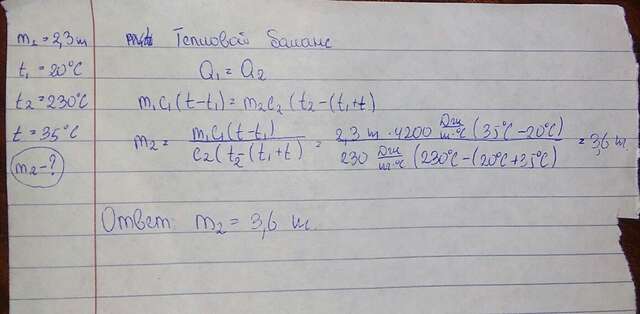 m₁ = 2,3 т
t₁ = 20°C
t₂ = 230°C
t = 35°C
m₂ - ?
Тепловой баланс
Q₁ = Q₂
m₁c₁(t-t₁) = m₂c₂(t₂-(t₁+t)
m₂ = m₁c₁(t-t₁) / c₂(t₂-(t₁+t) = 2,3 т · 4200 Дж/т·°C (35°C - 20°C) / 230 Дж/т·°C (230°C - (20°C + 35°C) = 3,6 т
Ответ: m₂ = 3,6 т.